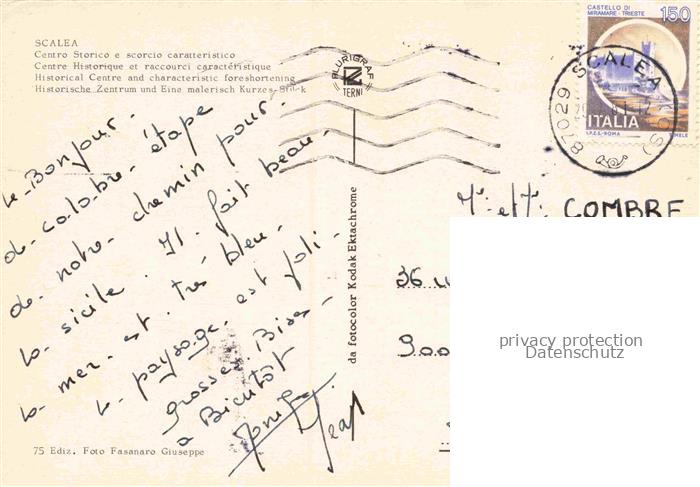 SCALEA
Centro Storico e scorcio caratteristico
Centre Historique et raccourci caractéristique
Historical Centre and characteristic foreshortening
Historische Zentrum und Eine malerisch Kurzes-Stück
PLURIGRAF
TERNI
CASTELLO DI
MIRAMARE - TRIESTE
150
ITALIA
I.P.Z.S. - ROMA
87029 SCALEA (CS)
Le Bonjour
de calabre étape
de notre chemin pour
la sicile. Il fait beau
la mer est très bleu
le paysage est joli
grosses Bises
a Bientôt
Jean
COMBRE
36
900
da fotocolor Kodak Ektachrome
75 Ediz. Foto Fasanaro Giuseppe
privacy protection
Datenschutz